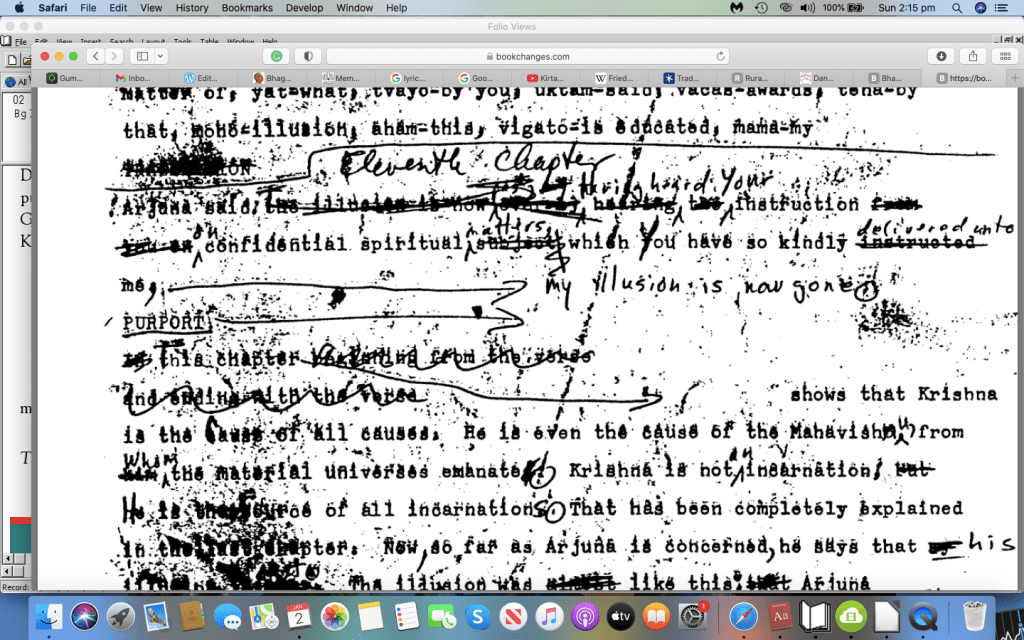 Safari File Edit View History Bookmarks Develop Window Help 100% Sun 2:15 pm
Folio Views
File Edit View Insert Search Layout Tools Table Window Help
bookchanges.com
Gum... Inbo... Edit... Bhag... Mem... lyric... Goo... Kirta... Fried... Trad... Rura... Dan... Bha... https://bo...
All
02
Bg
D
p
G
K
m
T
Record:
Matter of, yat=what, tvayo=by you, uktam=said, vacas=awards, tena=by
that, moho=illusion, aham=this, vigato=is educated, mama=my
Eleventh Chapter
Having heard Your
Arjuna said, the illusion is now hearing the instruction from
on matters delivered unto
confidential spiritual subject which You have so kindly instructed
me, my illusion is now gone.
PURPORT
this chapter from the verse
and ending with the verse shows that Krishna
is the Cause of all causes. He is even the cause of the Mahavishnu from
Whom the material universes emanate. Krishna is not an incarnation, but
He is the source of all incarnations. That has been completely explained
in the last chapter. Now, so far as Arjuna is concerned, he says that his
The illusion was like this, that Arjuna